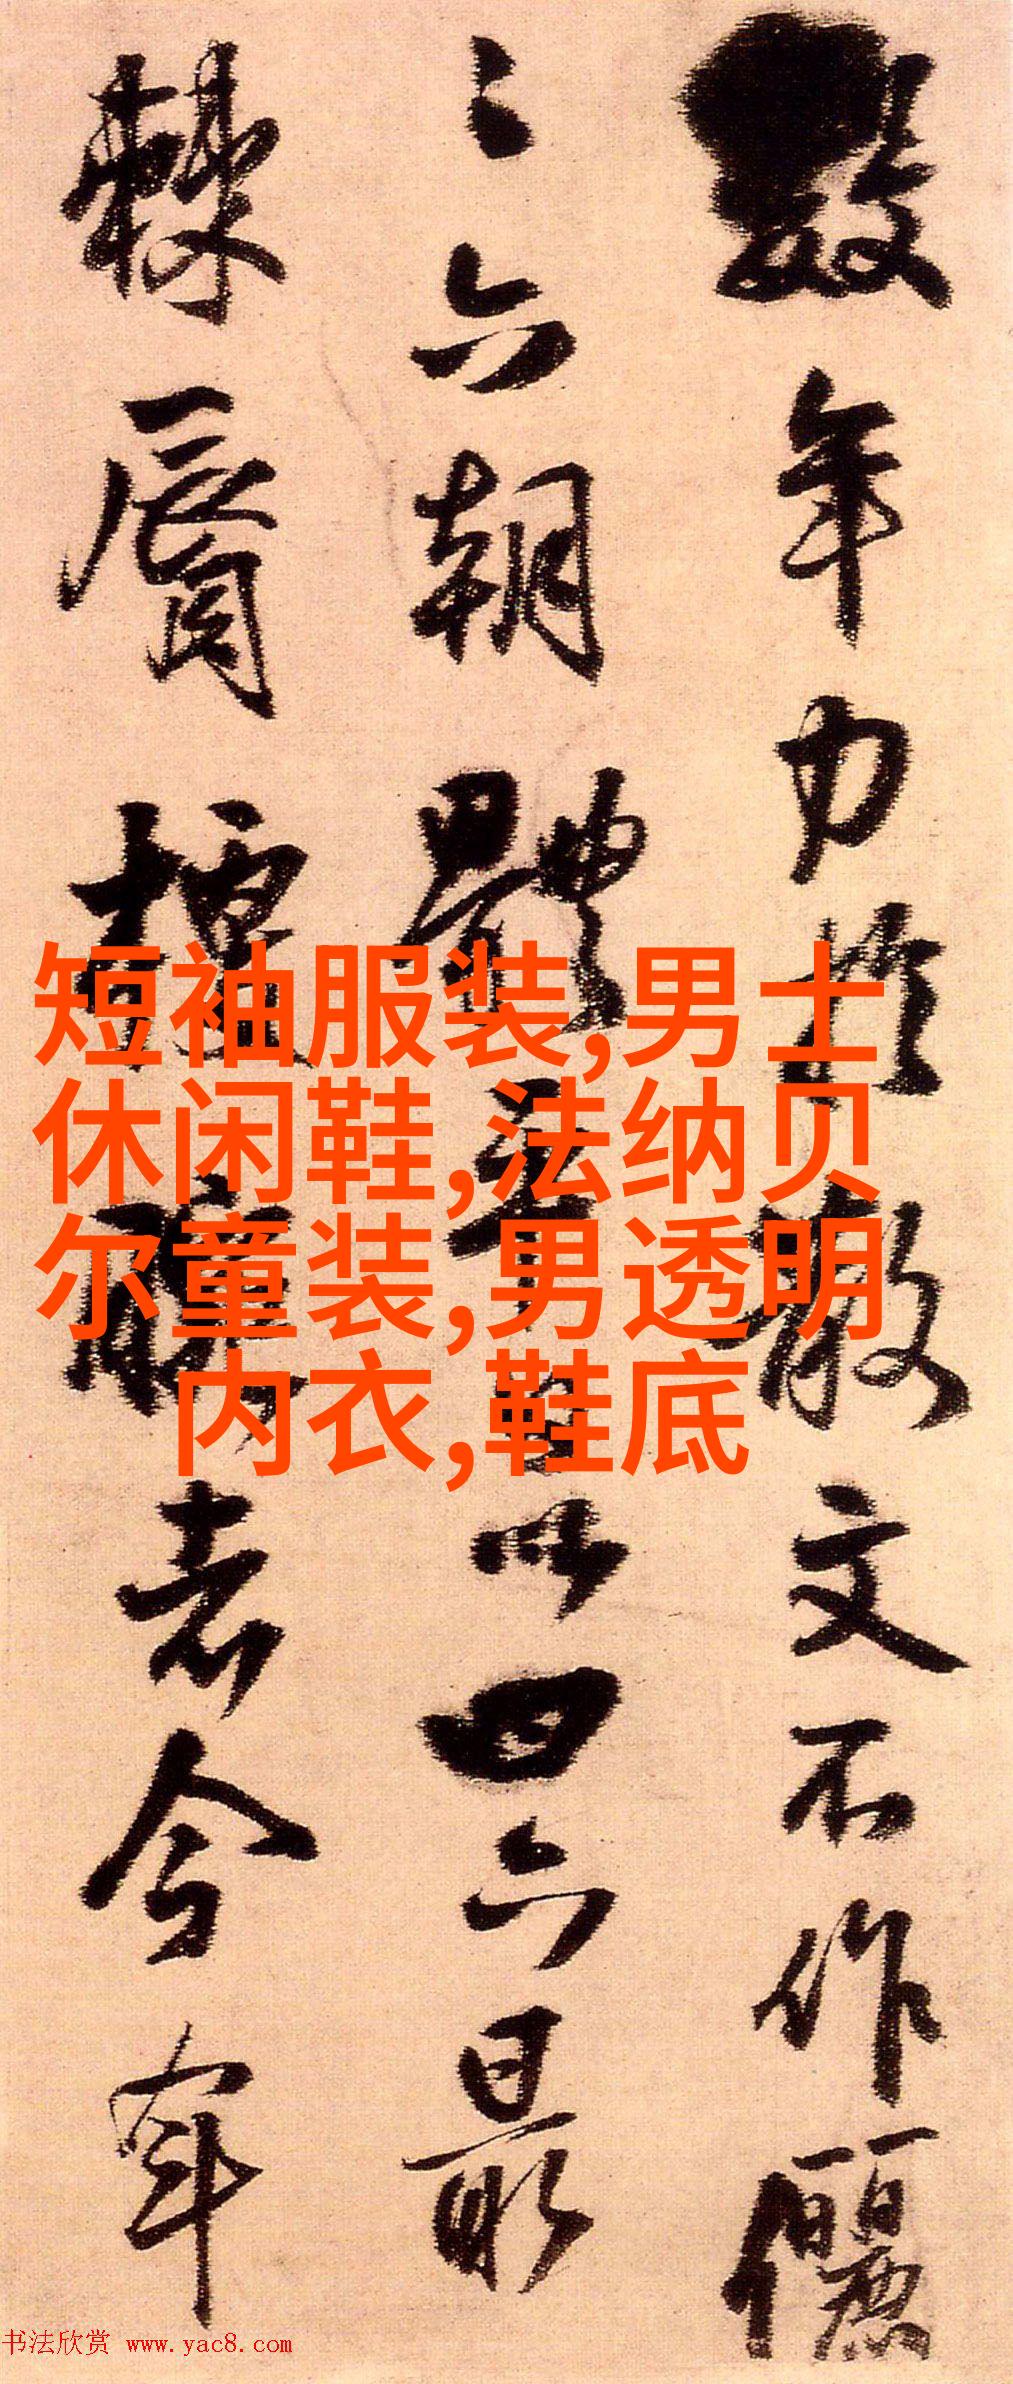 數年力於散文不作儷
之六朝體平〻以四六最
棘脣
老今年
短袖服装,男士
休闲鞋,法纳贝
尔童装,男透明
内衣,鞋底
书法欣赏 www.yac8.com